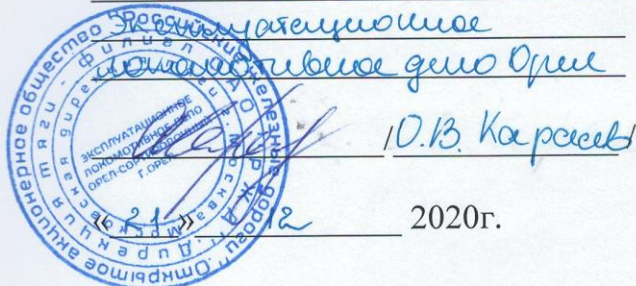 Эксплуатационное
локомотивное депо Орел
/О.В. Карасев/
« 21 » 12 2020г.
Открытое акционерное общество "Российские железные дороги"
ЭКСПЛУАТАЦИОННОЕ
ЛОКОМОТИВНОЕ ДЕПО
ОРЕЛ-СОРТИРОВОЧНЫЙ
Г.ОРЕЛ